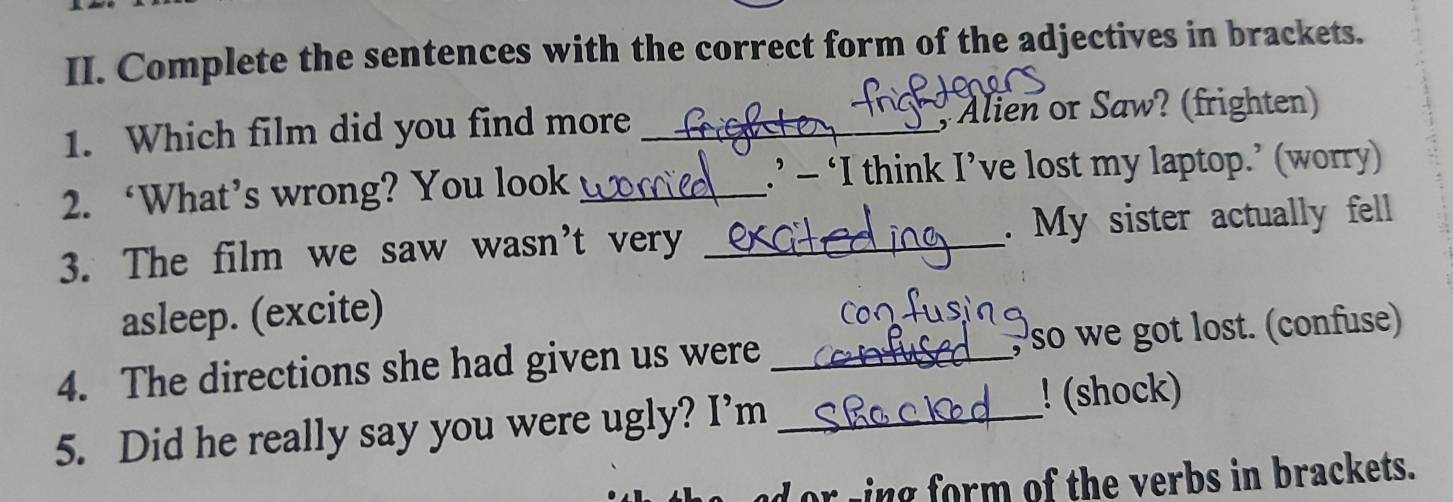 II. Complete the sentences with the correct form of the adjectives in brackets.
frighteners
1. Which film did you find more frighten, Alien or Saw? (frighten)
2. ‘What’s wrong? You look worried.’ – ‘I think I’ve lost my laptop.’ (worry)
3. The film we saw wasn’t very excited ing. My sister actually fell
asleep. (excite)
confusing
4. The directions she had given us were confused, so we got lost. (confuse)
5. Did he really say you were ugly? I’m shocked! (shock)
ed or -ing form of the verbs in brackets.